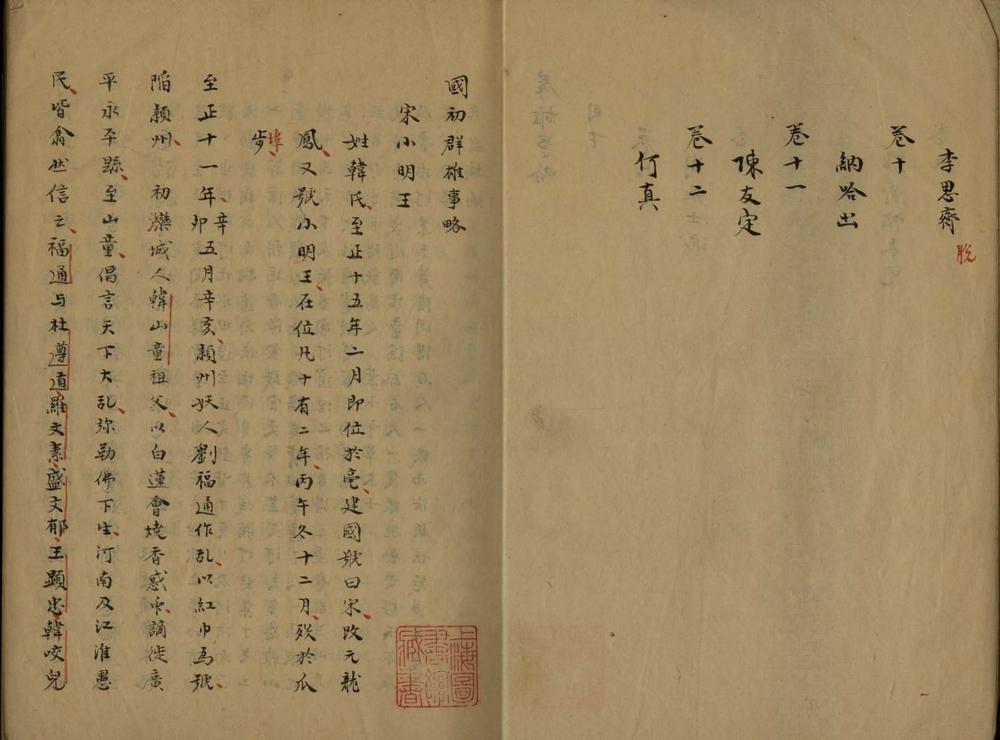 李思齊
脫
卷十
納哈出
卷十一
陳友定
卷十二
何真
國初群雄事略
宋小明王
姓韓氏至正十五年二月即位於亳建國號曰宋改元龍
鳳又號小明王在位凡十有二年丙午冬十二月殁於瓜
步
埠
至正十一年辛卯五月辛亥潁州妖人劉福通作乱以紅巾為號
陷潁州初灤城人韓山童祖父以白蓮會燒香惑衆謫徙廣
平永平縣至山童倡言天下大乱弥勒佛下生河南及江淮愚
民皆翕然信之福通与杜遵道羅文素盛文郁王顯忠韓咬兒
上海圖書館藏書